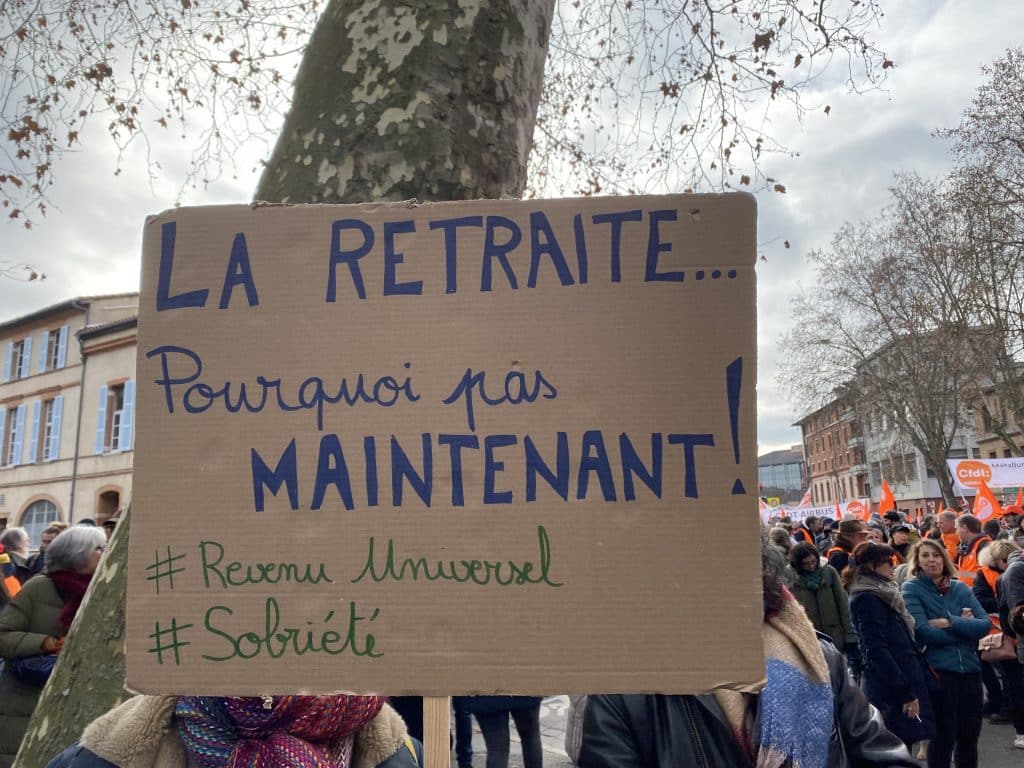 LA RETRAITE...
Pourquoi pas
MAINTENANT!
# Revenu Universel
# Sobriété
Cfdt:
CFDT AIRBUS